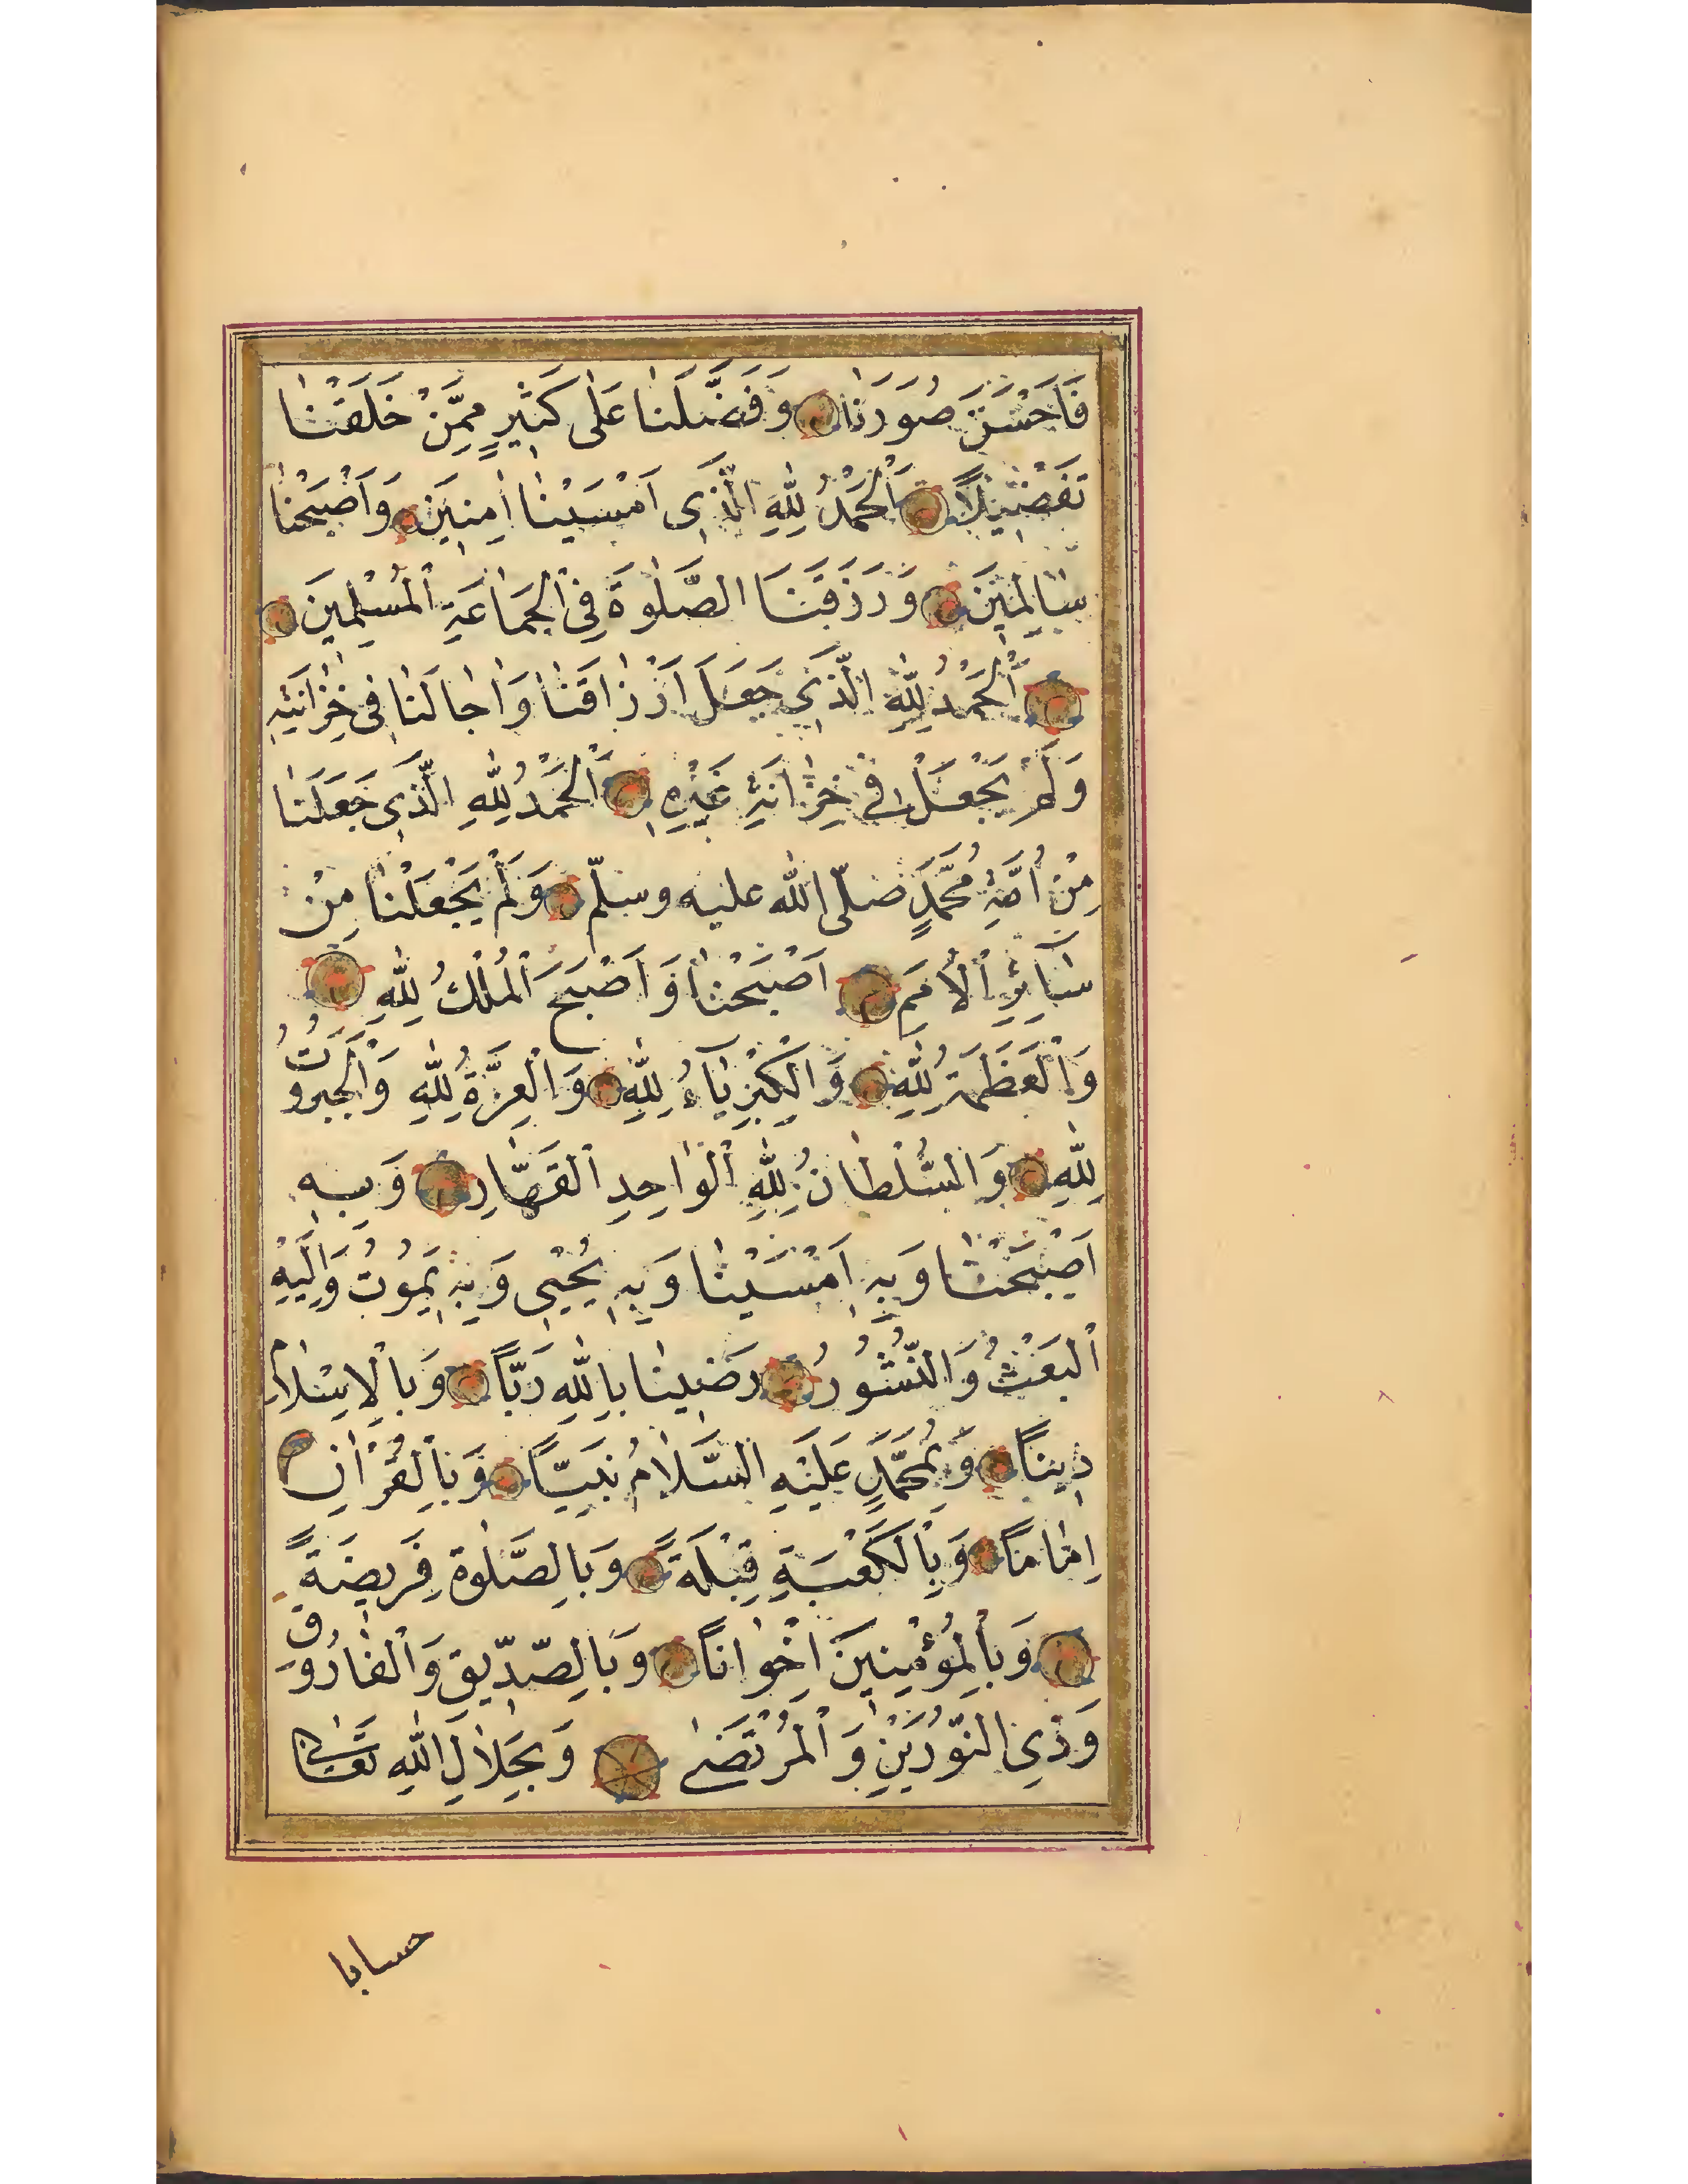 فَاَحْسَنَ صُوَرَنَا وَفَضَّلَنَا عَلٰى كَثِيرٍ مِمَّنْ خَلَقْنَا
تَفْضِيلًا اَلْحَمْدُ لِلّٰهِ الَّذِى اَمْسَيْنَا اٰمِنِيَن وَاَصْبَحْنَا
سَالِمِيَن وَرَزَقَنَا الصَّلٰوةَ فِى الْجَمَاعَةِ الْمُسْلِمِيَن
اَلْحَمْدُ لِلّٰهِ الَّذِى جَعَلَ اَرْزَاقَنَا وَاٰجَالَنَا فِى خِزَانَتِهِ
وَلَمْ يَجْعَلْ فِى خِزَانَةِ غَيْرِهِ اَلْحَمْدُ لِلّٰهِ الَّذِى جَعَلَنَا
مِنْ اُمَّةِ مُحَمَّدٍ صلّى الله عليه وسلّم وَلَمْ يَجْعَلْنَا مِنْ
سَآئِرِ الْاُمَمِ اَصْبَحْنَا وَاَصْبَحَ الْمُلْكُ لِلّٰهِ
وَالْعَظَمَةُ لِلّٰهِ وَالْكِبْرِيَآءُ لِلّٰهِ وَالْعِزَّةُ لِلّٰهِ وَالْجَبَرُوتُ
لِلّٰهِ وَالسُّلْطَانُ لِلّٰهِ الْوَاحِدِ الْقَهَّارِ وَبِهِ
اَصْبَحْنَا وَبِهِ اَمْسَيْنَا وَبِهِ يُحْيِى وَبِهِ يَمُوتُ وَاِلَيْهِ
الْبَعْثُ وَالنُّشُورُ رَضِينَا بِاللّٰهِ رَبًّا وَبِالْاِسْلَامِ
دِينًا وَبِمُحَمَّدٍ عَلَيْهِ السَّلَامُ نَبِيًّا وَبِالْقُرْاٰنِ
اِمَامًا وَبِالْكَعْبَةِ قِبْلَةً وَبِالصَّلٰوةِ فَرِيضَةً
وَبِالْمُؤْمِنِينَ اِخْوَانًا وَبِالصِّدِّيقِ وَالْفَارُوقِ
وَذِى النُّورَيْنِ وَالْمُرْتَضٰى وَبِجَلَالِ اللّٰهِ تَعَالٰى